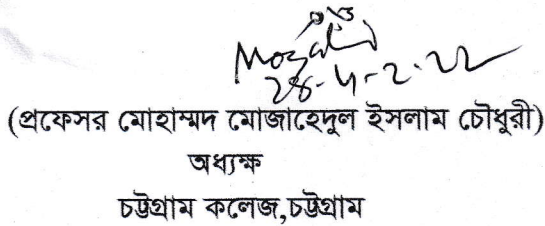 28-4-2.22
(প্রফেসর মোহাম্মদ মোজাহেদুল ইসলাম চৌধুরী)
অধ্যক্ষ
চট্টগ্রাম কলেজ,চট্টগ্রাম